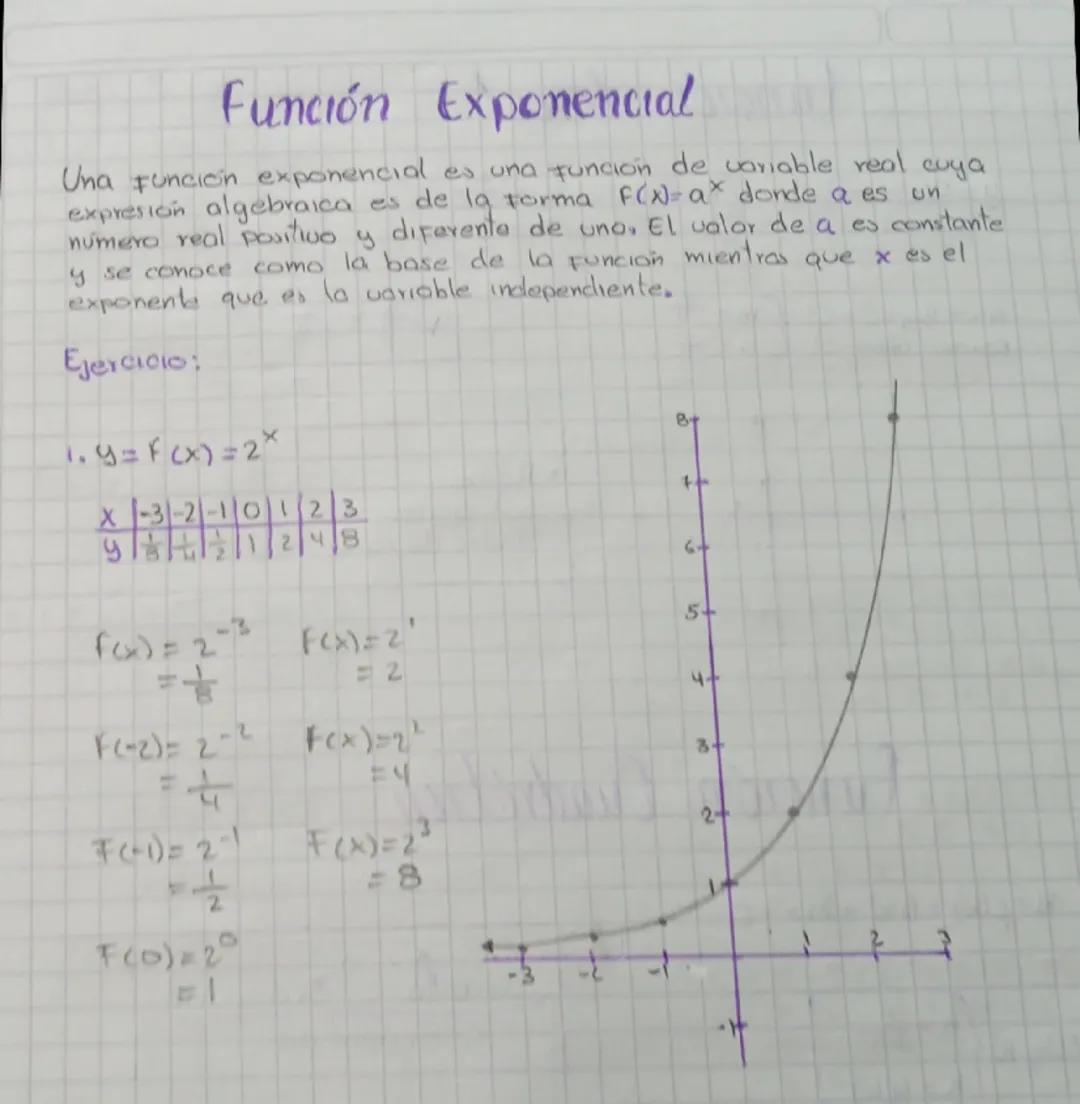 Función Exponencial
Una función exponencial es una función de variable real cuya
expresión algebraica es de la forma F(x)=aˣ donde a es un
número real positivo y diferente de uno. El valor de a es constante
y se conoce como la base de la función mientras que x es el
exponente que es la variable independiente.
Ejercicio:
1. y = f(x) = 2ˣ
x | -3 | -2 | -1 | 0 | 1 | 2 | 3
y | 1/8 | 1/4 | 1/2 | 1 | 2 | 4 | 8
f(x) = 2⁻³
= 1/8
F(-2) = 2⁻²
= 1/4
F(-1) = 2⁻¹
= 1/2
F(0) = 2⁰
= 1
F(x) = 2¹
= 2
F(x) = 2²
= 4
F(x) = 2³
= 8
8
7
6
5
4
3
2
1
-3 -2 -1 1 2 3
-1